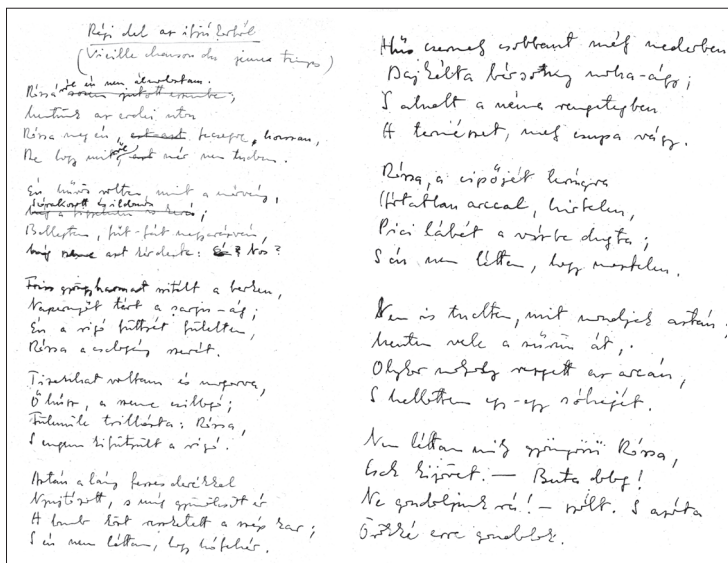 Régi dal az ifjúkorból
(Vieille chanson du jeune temps)
Rózsá és én nem álmodtam.
mentünk az erdei uton
Rózsa meg én, fecsegve, hosszan,
De hogy miről, már nem tudom.
Én hűvös voltam, mint a márvány,
Ballagtam, fűt-fát megcsodálván,
azt kérdezte: Nos?
Friss gyöngyharmat mitúlt a berken,
Napernyőt tárt a sarju-ág;
Én a rigó füttyét füleltem,
Rózsa a csalogány szavát.
Tizenhat voltam és mogorva,
Ő húsz, a szeme csillogó;
Fülemüle trillázta: Rózsa,
S engem kifütyült a rigó.
Aztán a lány feszes derékkal
Nyujtózott, s míg gyümölcsöt ér
A lomb közt reszketett a szép kar;
S én nem láttam, hogy hófehér.
Hűs csermely csobbant mély mederben
Dajkálta bársony moha-ágy;
S aludt a néma rengetegben
A természet, mely csupa vágy.
Rózsa, a cipőjét levonva
Ártatlan arccal, hirtelen,
Pici lábát a vízbe dugta;
S én nem láttam, hogy meztelen.
Nem is tudtam, mit mondjak aztán;
mentem vele a sűrűn át,
Olykor mosoly rezgett az arcán,
S hallottam egy-egy sóhaját.
Nem láttam míg gyönyörű Rózsa,
Csak kijövet. — Buta dolog!
Ne gondoljunk rá! — szólt. S azóta
Örökké erre gondolok.